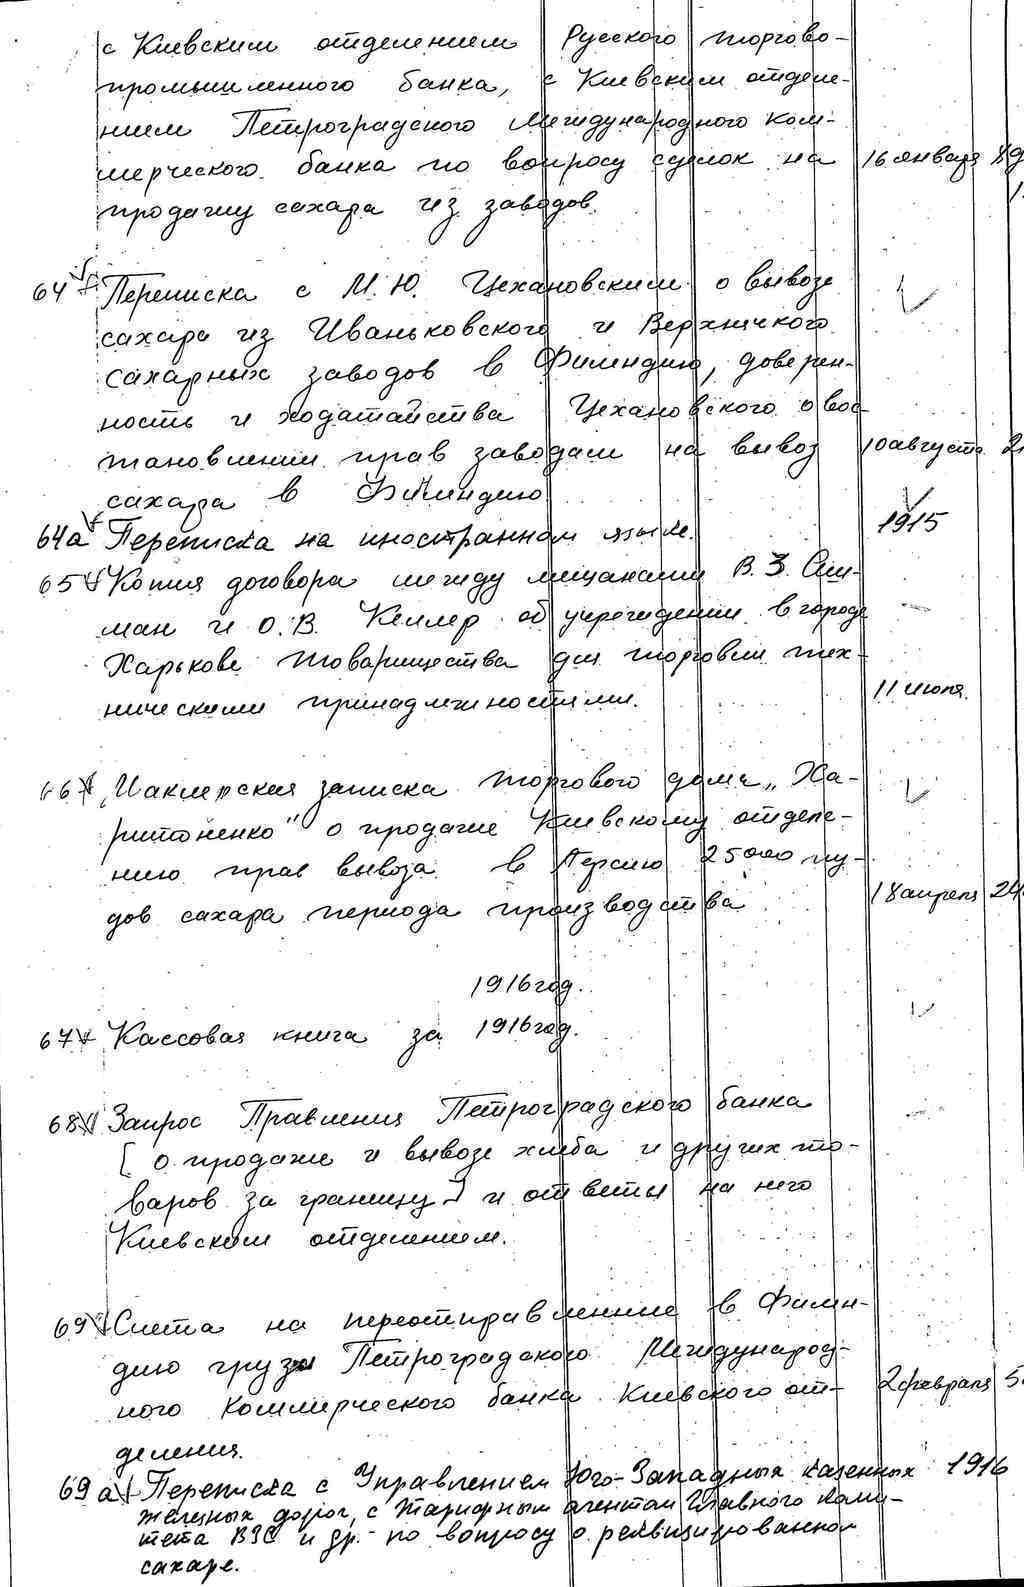 с Киевским отделением Русского торгово-
промышленного банка, с Киевским отделе-
нием Петроградского Международного Ком-
мерческого банка по вопросу сделок на 16 января
продажу сахара из заводов.
64 Переписка с М.Ю. Цехановским о вывозе
сахара из Иваньковского и Верхнячкого
сахарных заводов в Финляндию, доверен-
ность и ходатайства Цехановского о вос-
тановлении прав заводам на вывоз 10 августа
сахара в Финляндию
64а Переписка на иностранном языке. 1915
65 Копия договора между мещанами В.З.
ман и О.В. Келлер об учреждении в городе
Харькове товарищества для торговли тех-
ническими принадлежностями. 11 июля.
66 Маклерская записка торгового дома „Ха-
ритоненко" о продаже Киевскому отделе-
нию прав вывоза в Персию 25000 пу-
дов сахара периода производства 18 апреля 24
1916 год.
67 Кассовая книга за 1916 год.
68 Запрос Правления Петроградского банка
[о продаже и вывозе хлеба и других то-
варов за границу] и ответы на него
Киевским отделением.
69 Счета на переотправленные в Финлян-
дию грузы Петроградского Международ-
ного Коммерческого банка Киевского от- 2 февраля 5
деления.
69а Переписка с Управлением Юго-Западных казенных 1916
железных дорог, с тарифным агентом Главного Коми-
тета ВЗС и др. по вопросу о реквизированном
сахаре.